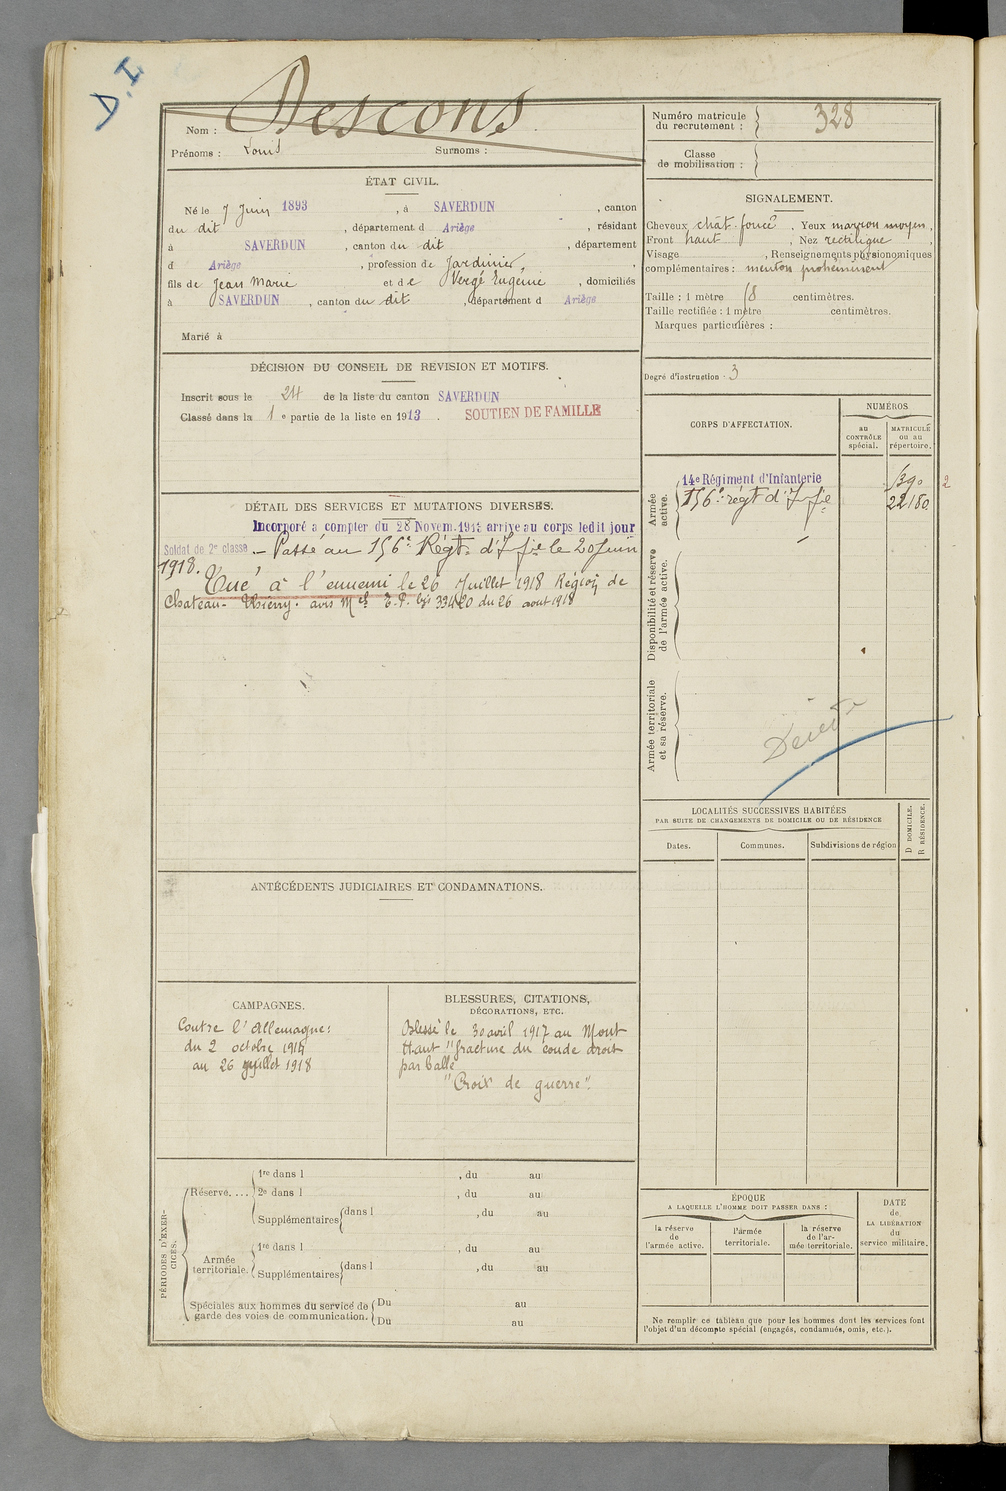 D.I
Nom : Descons
Prénoms : Louis Surnoms :
Numéro matricule
du recrutement : 328
Classe
de mobilisation :
ÉTAT CIVIL.
Né le 7 Juin 1893, à SAVERDUN, canton
du dit, département d Ariège, résidant
à SAVERDUN, canton du dit, département
d Ariège, profession de Jardinier,
fils de Jean Marie et de Vergé Eugénie, domiciliés
à SAVERDUN, canton du dit, département d Ariège
Marié à
SIGNALEMENT.
Cheveux chât. foncé. Yeux marron moyen,
Front haut, Nez rectiligne,
Visage, Renseignements physionomiques
complémentaires : menton proheminent
Taille : 1 mètre 68 centimètres.
Taille rectifiée : 1 mètre centimètres.
Marques particulières :
Degré d'instruction . 3
DÉCISION DU CONSEIL DE REVISION ET MOTIFS.
Inscrit sous le 24 de la liste du canton SAVERDUN
Classé dans la 1e partie de la liste en 1913. SOUTIEN DE FAMILLE
CORPS D'AFFECTATION.
NUMÉROS
au
CONTRÔLE
spécial.
MATRICULE
ou au
répertoire.
Armée
active.
14e Régiment d'Infanterie
156e régt d'Ifie 22180
2
Disponibilité et réserve
de l'armée active.
Armée territoriale
et sa réserve.
DÉTAIL DES SERVICES ET MUTATIONS DIVERSES.
Incorporé a compter du 28 Novem. 1913 arrivé au corps ledit jour
Soldat de 2e classe. — Passé au 156e Régt. d'Ifie le 20 Juin
1918.
Tué à l'ennemi le 26 Juillet 1918 Région de
Chateau-Thierry. avis Mel du 26 aout 1918
LOCALITÉS SUCCESSIVES HABITÉES
PAR SUITE DE CHANGEMENTS DE DOMICILE OU DE RÉSIDENCE
Dates.
Communes.
Subdivisions de région
D DOMICILE.
R RÉSIDENCE.
ANTÉCÉDENTS JUDICIAIRES ET CONDAMNATIONS.
CAMPAGNES.
Contre l'Allemagne:
du 2 octobre 1914
au 26 juillet 1918
BLESSURES, CITATIONS,
DÉCORATIONS, ETC.
Blessé le 30 avril 1917 au Mont
Haut "fracture du coude droit
par balle
"Croix de guerre".
PÉRIODES D'EXER-
CICES.
Réserve....
1re dans l , du au
2e dans l , du au
Supplémentaires dans l , du au
Armée
territoriale.
1re dans l , du au
Supplémentaires dans l , du au
Spéciales aux hommes du service de
garde des voies de communication.
Du au
Du au
ÉPOQUE
A LAQUELLE L'HOMME DOIT PASSER DANS :
la réserve
de
l'armée active.
l'armée
territoriale.
la réserve
de l'ar-
mée territoriale.
DATE
de
LA LIBÉRATION
du
service militaire.
Ne remplir ce tableau que pour les hommes dont les services font
l'objet d'un décompte spécial (engagés, condamnés, omis, etc.).